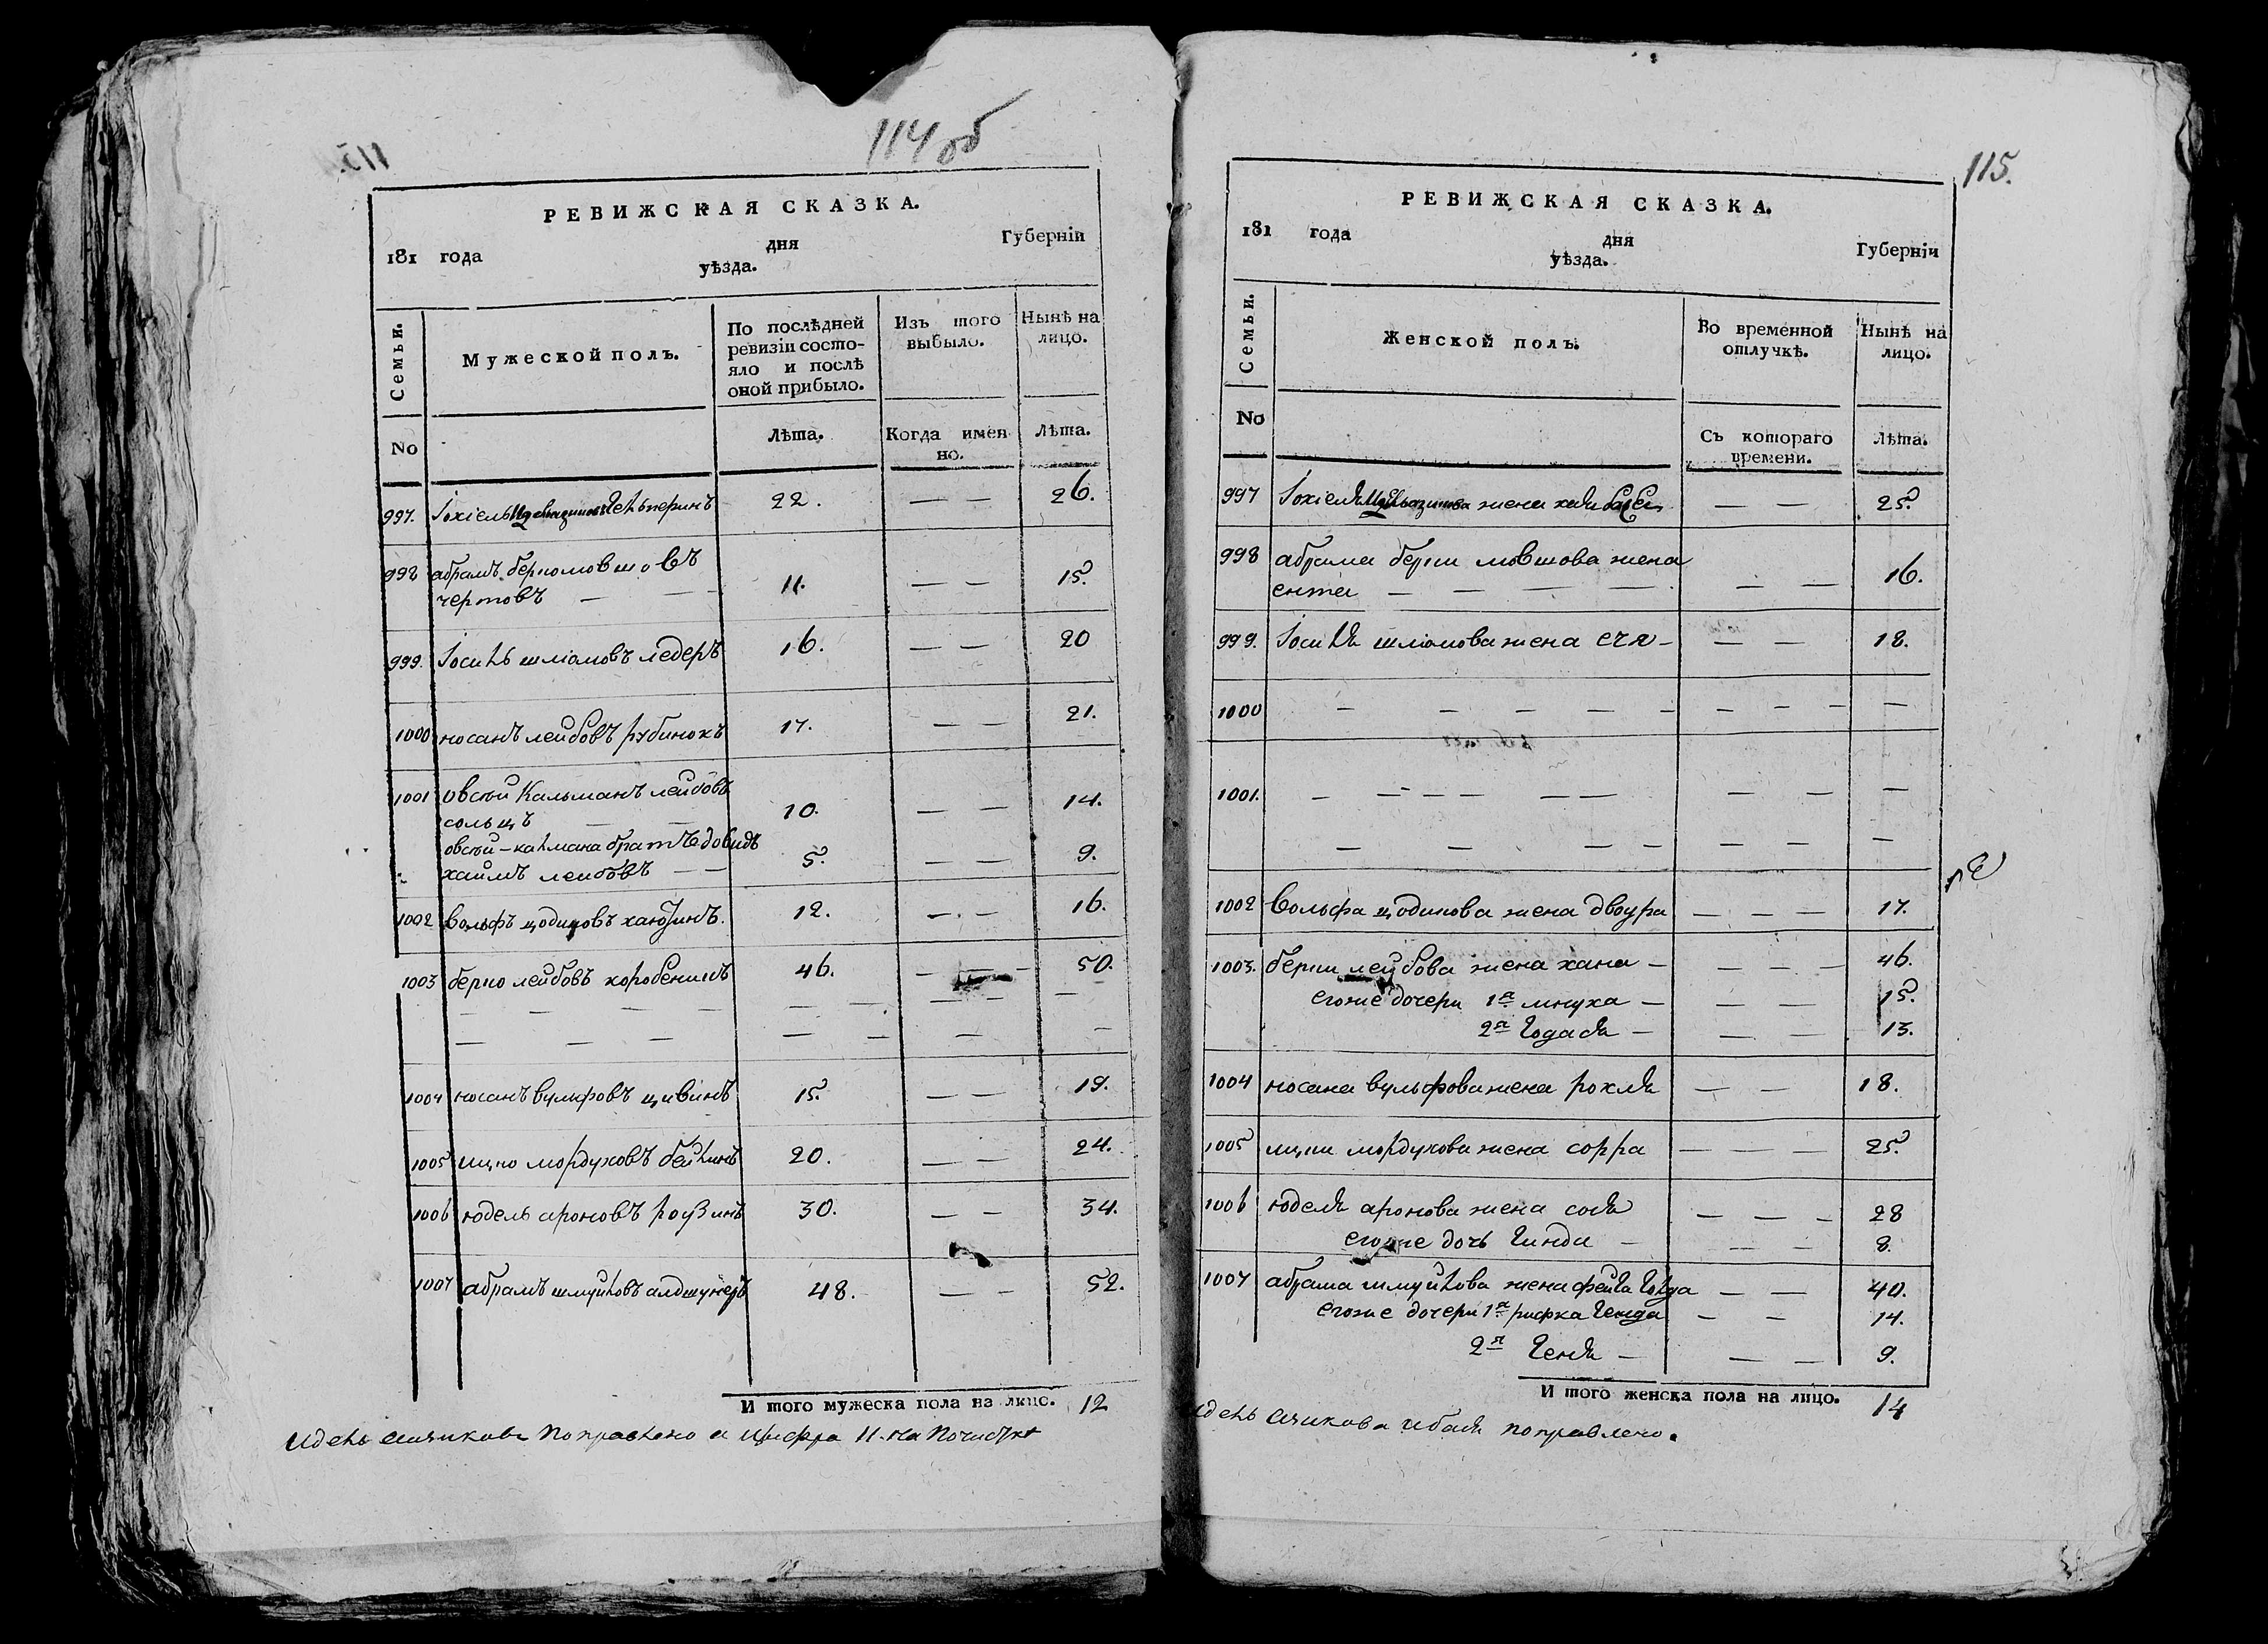 115.
114 об
РЕВИЖСКАЯ СКАЗКА.
181 года дня Губерніи
уѣзда.
Семьи. Мужеской полъ. По послѣдней ревизіи состояло и послѣ оной прибыло. Изъ того выбыло. Нынѣ на лицо.
No Лѣта. Когда именно. Лѣта.
997. Іохіель 22. — — 26.
998 абрамъ берко мовшовъ
чертовъ — — 11. — — 15.
999. Іосиль шліомовъ ледеръ 16. — — 20
1000 носанъ лейбовъ рубинокъ 17. — — 21.
1001 овсѣй Кальманъ лейбовъ
сольцъ — — 10. — — 14.
овсѣй-калмана братъ довидъ
хаимъ лейбовъ — — 5. — — 9.
1002 вольфъ цодиковъ 12. — — 16.
1003 берко лейбовъ 46. — — — 50.
— — — — — — — — —
— — — — — — —
1004 носанъ вульфовъ цивинъ 15. — — 19.
1005 ицко мордуховъ бейлинъ 20. — — 24.
1006 юдель ароновъ роузинъ 30. — — 34.
1007 абрамъ шмуйловъ 48. — — 52.
И того мужеска пола на лицо. 12
поправлено и цифра 11. на почистке
115.
РЕВИЖСКАЯ СКАЗКА.
181 года дня Губерніи
уѣзда.
Семьи. Женской полъ. Во временной отлучкѣ. Нынѣ на лицо.
No Съ котораго времени. Лѣта.
997 Іохіеля жена хая — — 25.
998 абрама берки мовшова жена
ента — — — — — — 16.
999. Іосиля шліомова жена — — — 18.
1000 — — — — — — — — —
1001. — — — — — — — — —
— — — — — — —
1002 вольфа цодикова жена двоура — — — 17.
1003. берки лейбова жена хана — — — — 46.
егоже дочери 1я мнуха — — — 15.
2я годася — — — 13.
1004 носана вульфова жена рохля — — 18.
1005 ицки мордухова жена сорра — — — 25.
1006 юделя аронова жена сося — — — 28
егоже дочь гинда — — — 8.
1007 абрама шмуйлова жена фейга голда — — 40.
егоже дочери 1я рифка генда — — 14.
2я геня — — — 9.
И того женска пола на лицо. 14
поправлено.